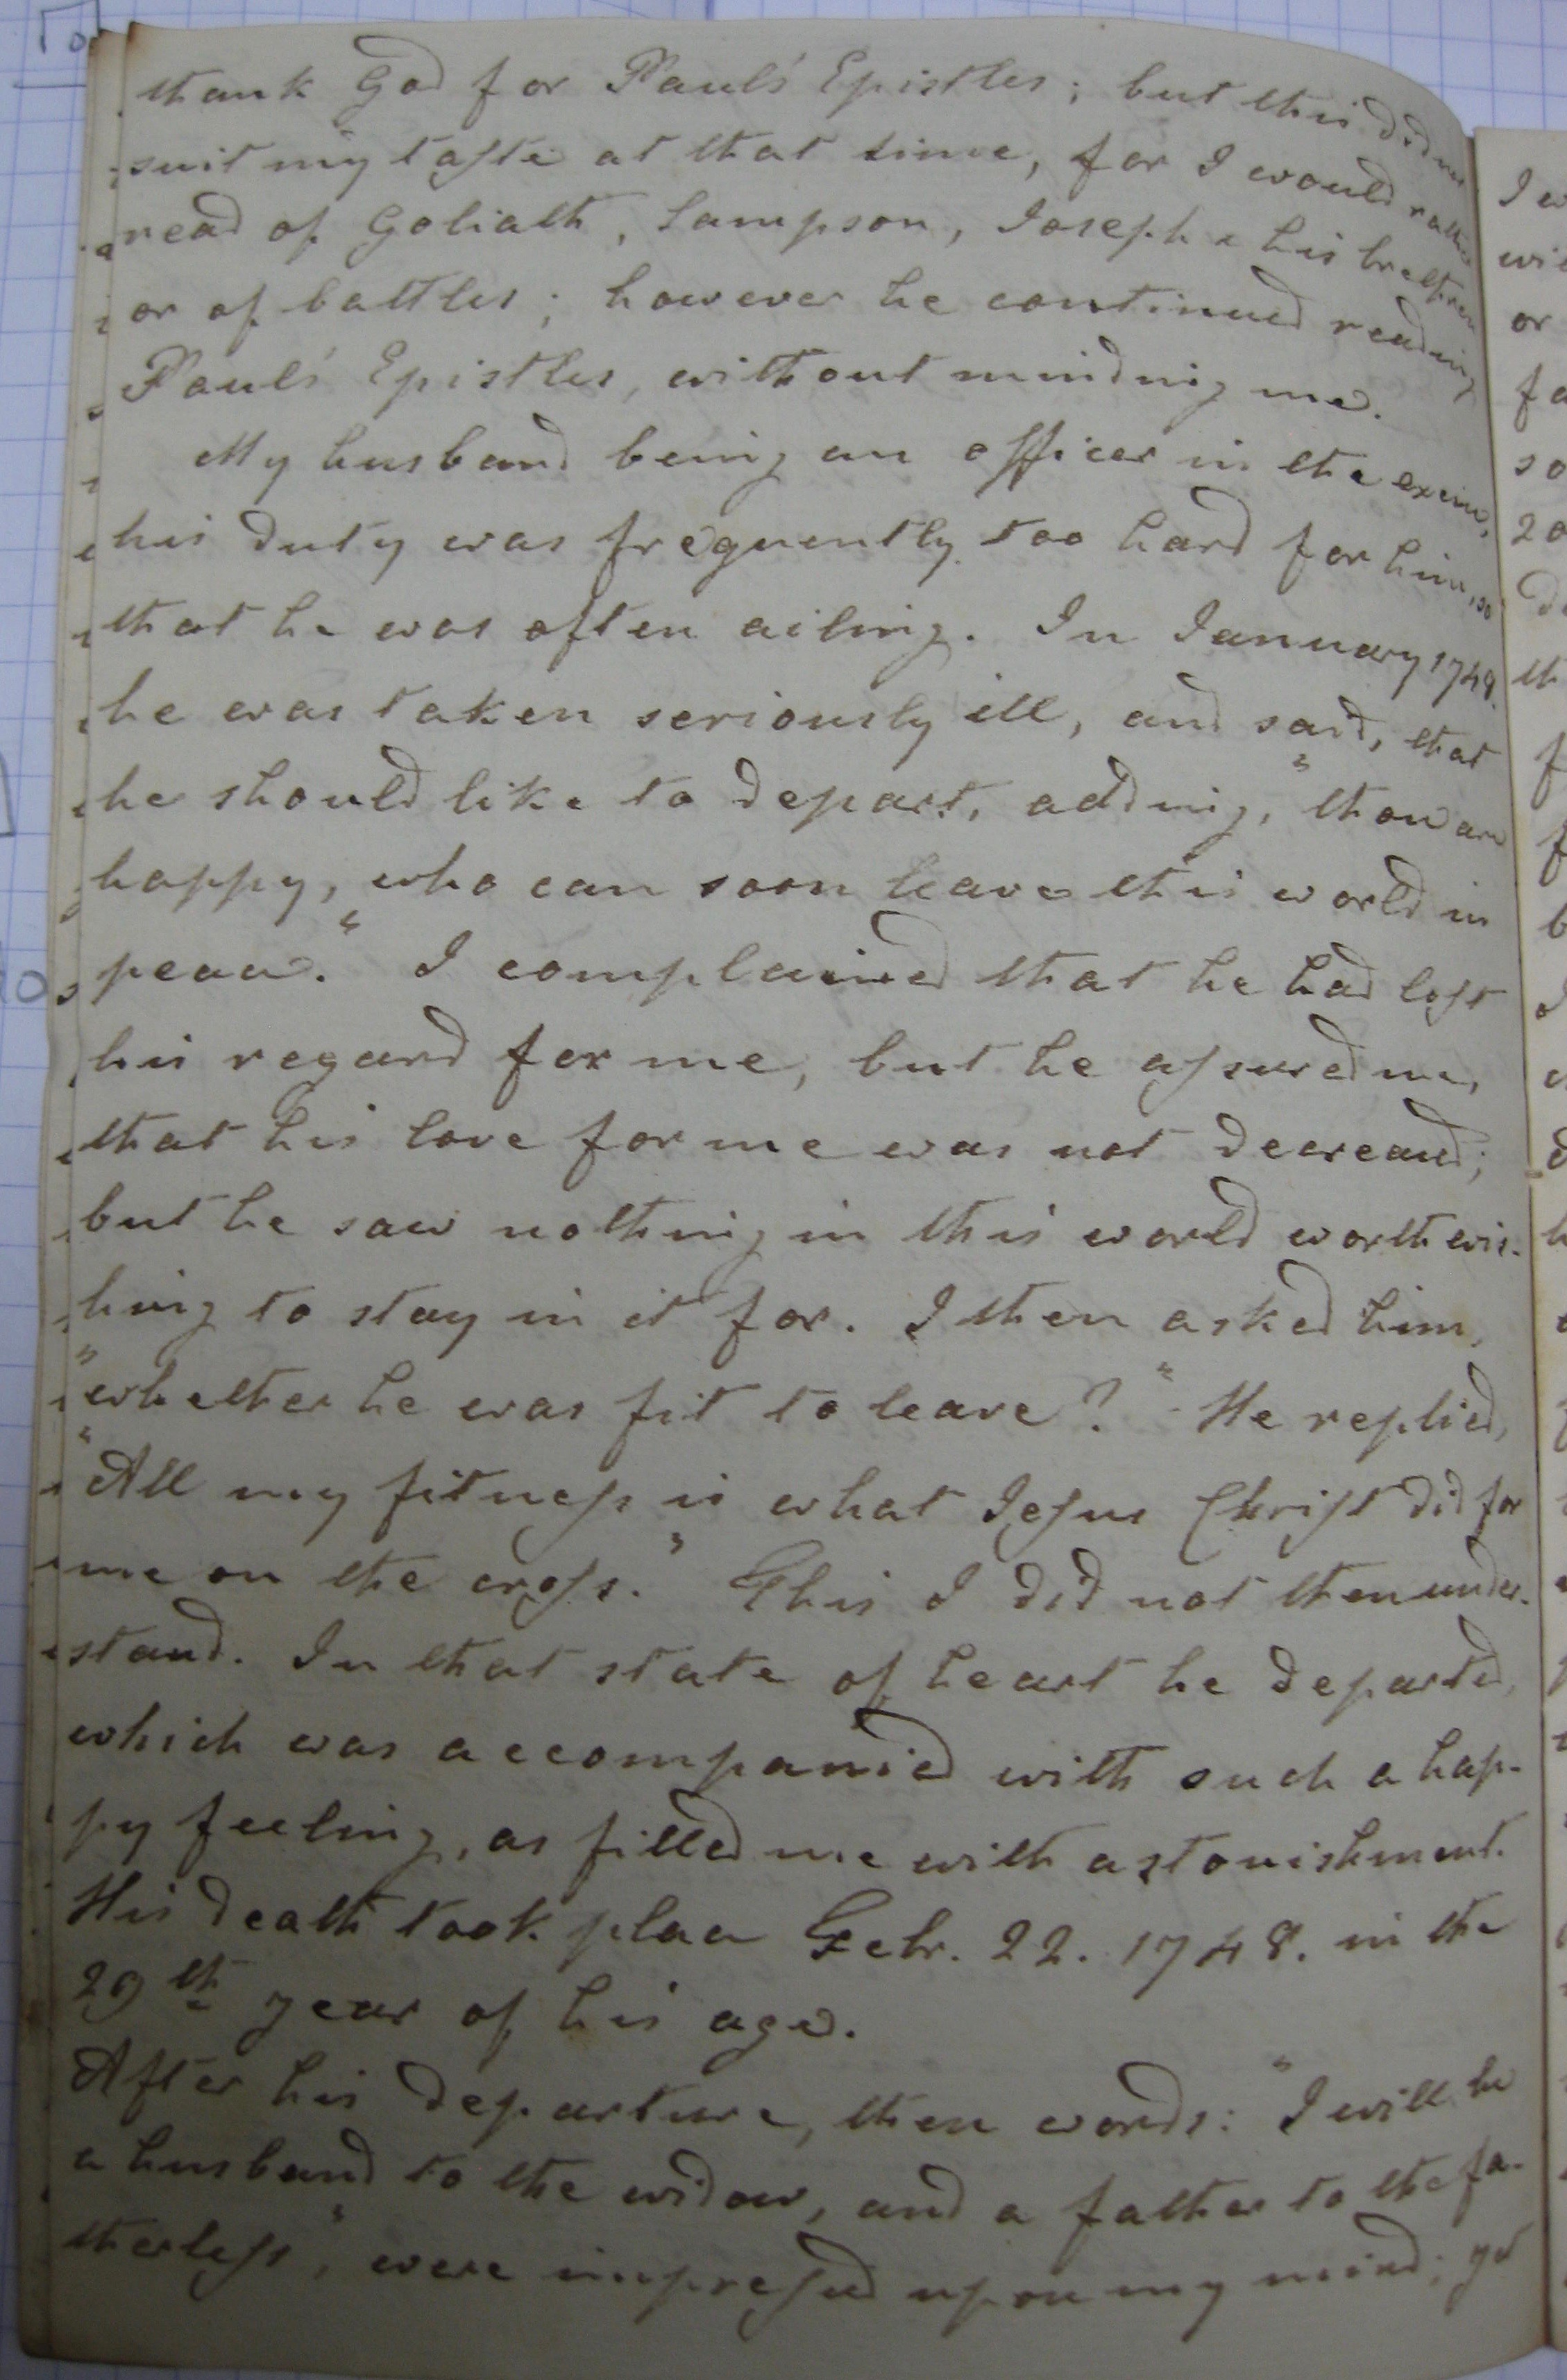 thank God for Paul's Epistles; but this did not
suit my taste at that time, for I would rather
read of Goliath, Sampson, Joseph & his brethren
or of battles; however he continued reading
Paul's Epistles, without minding me.
My husband being an officer in the excise,
his duty was frequently too hard for him, so
that he was often ailing. In January 1748.
he was taken seriously ill, and said, that
he should like to depart, adding, "thou art
happy, who can soon leave this world in
peace." I complained that he had lost
his regard for me, but he assured me,
that his love for me was not decreased;
but he saw nothing in this world worth wis-
hing to stay in it for. I then asked him,
"whether he was fit to leave?" He replied,
"All my fitness is what Jesus Christ did for
me on the cross." This I did not then under-
stand. In that state of heart he departed,
which was accompanied with such a hap-
py feeling, as filled me with astonishment.
His death took place Febr. 22. 1748. in the
29th year of his age.
After his departure, these words: "I will be
a husband to the widow, and a father to the fa-
therless", were impressed upon my mind; yet
I w
wi
or
fa
so
20
d
th